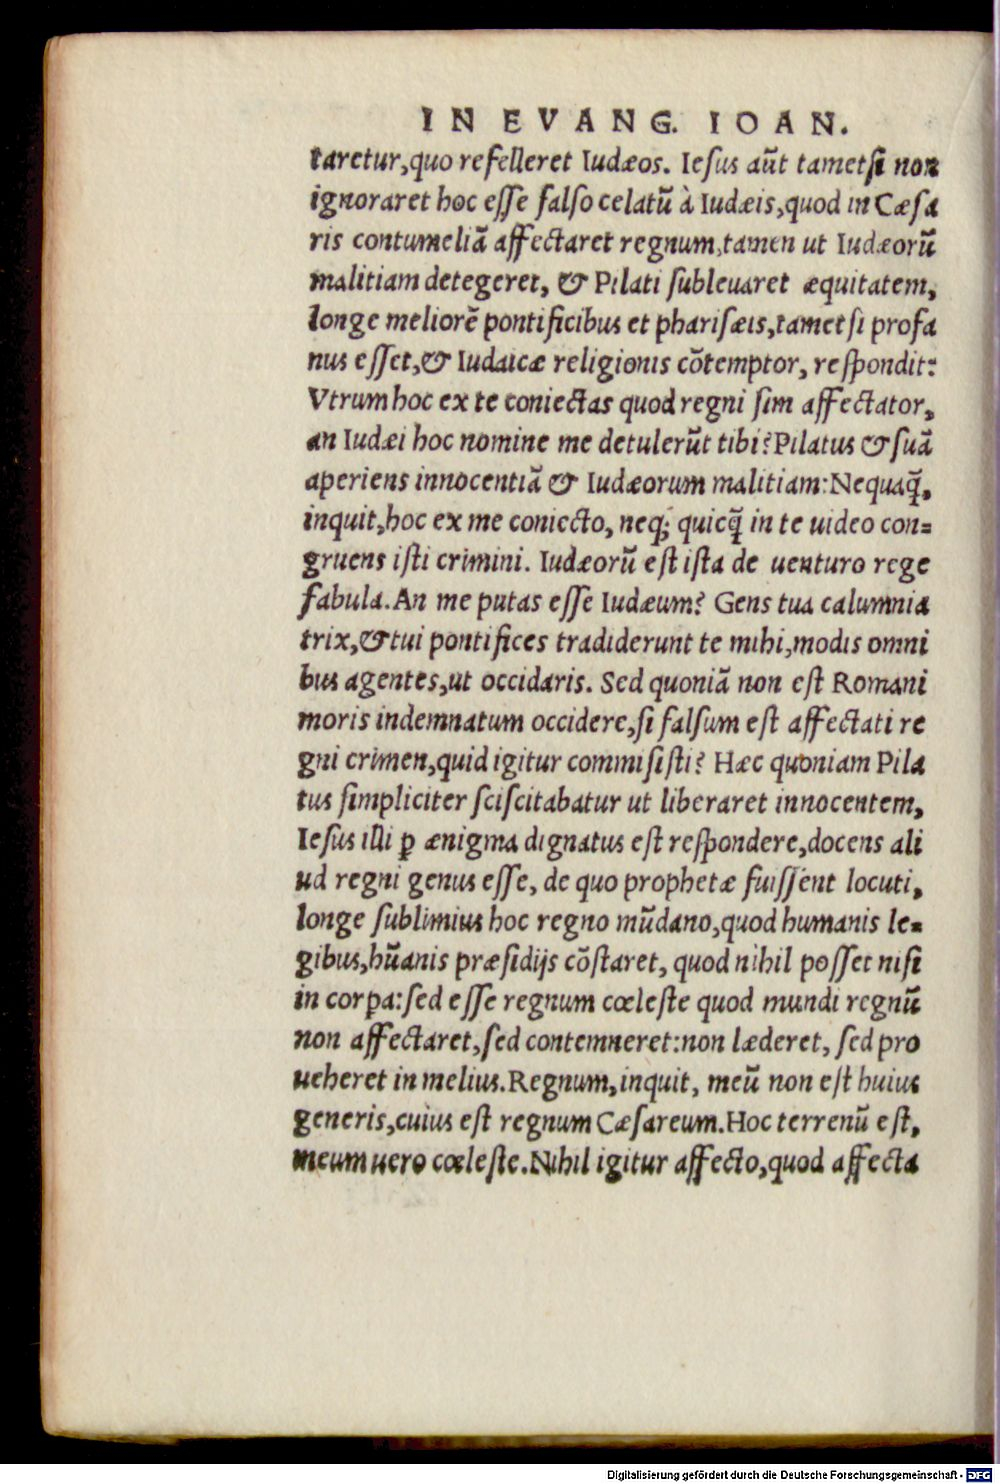 IN EVANG. IOAN.
taretur,quo refelleret Iudæos. Iesus aūt tametsi non
ignoraret hoc esse falso celatū à Iudæis,quod in Cæsa
ris contumeliā affectaret regnum,tamen ut Iudæorū
malitiam detegeret, & Pilati subleuaret æquitatem,
longe meliorē pontificibus et pharisæis,tametsi profa
nus esset,& Iudaicæ religionis cōtemptor, respondit:
Vtrum hoc ex te coniectas quod regni sim affectator,
an Iudæi hoc nomine me detulerūt tibi?Pilatus & suā
aperiens innocentiā & Iudæorum malitiam:Nequaq̃,
inquit,hoc ex me coniecto, neq; quicq̃ in te uideo con=
gruens isti crimini. Iudæorū est ista de uenturo rege
fabula.An me putas esse Iudæum? Gens tua calumnia
trix,& tui pontifices tradiderunt te mihi,modis omni
bus agentes,ut occidaris. Sed quoniā non est Romani
moris indemnatum occidere,si falsum est affectati re
gni crimen,quid igitur commisisti? Hæc quoniam Pila
tus simpliciter sciscitabatur ut liberaret innocentem,
Iesus illi ꝑ ænigma dignatus est respondere,docens ali
ud regni genus esse, de quo prophetæ fuissent locuti,
longe sublimius hoc regno mūdano,quod humanis le=
gibus,hūanis præsidijs cōstaret, quod nihil posset nisi
in corpa:sed esse regnum cœleste quod mundi regnū
non affectaret,sed contemneret:non læderet, sed pro
ueheret in melius.Regnum,inquit, meū non est huius
generis,cuius est regnum Cæsareum.Hoc terrenū est,
meum uero cœleste.Nihil igitur affecto,quod affecta
Digitalisierung gefördert durch die Deutsche Forschungsgemeinschaft - DFG